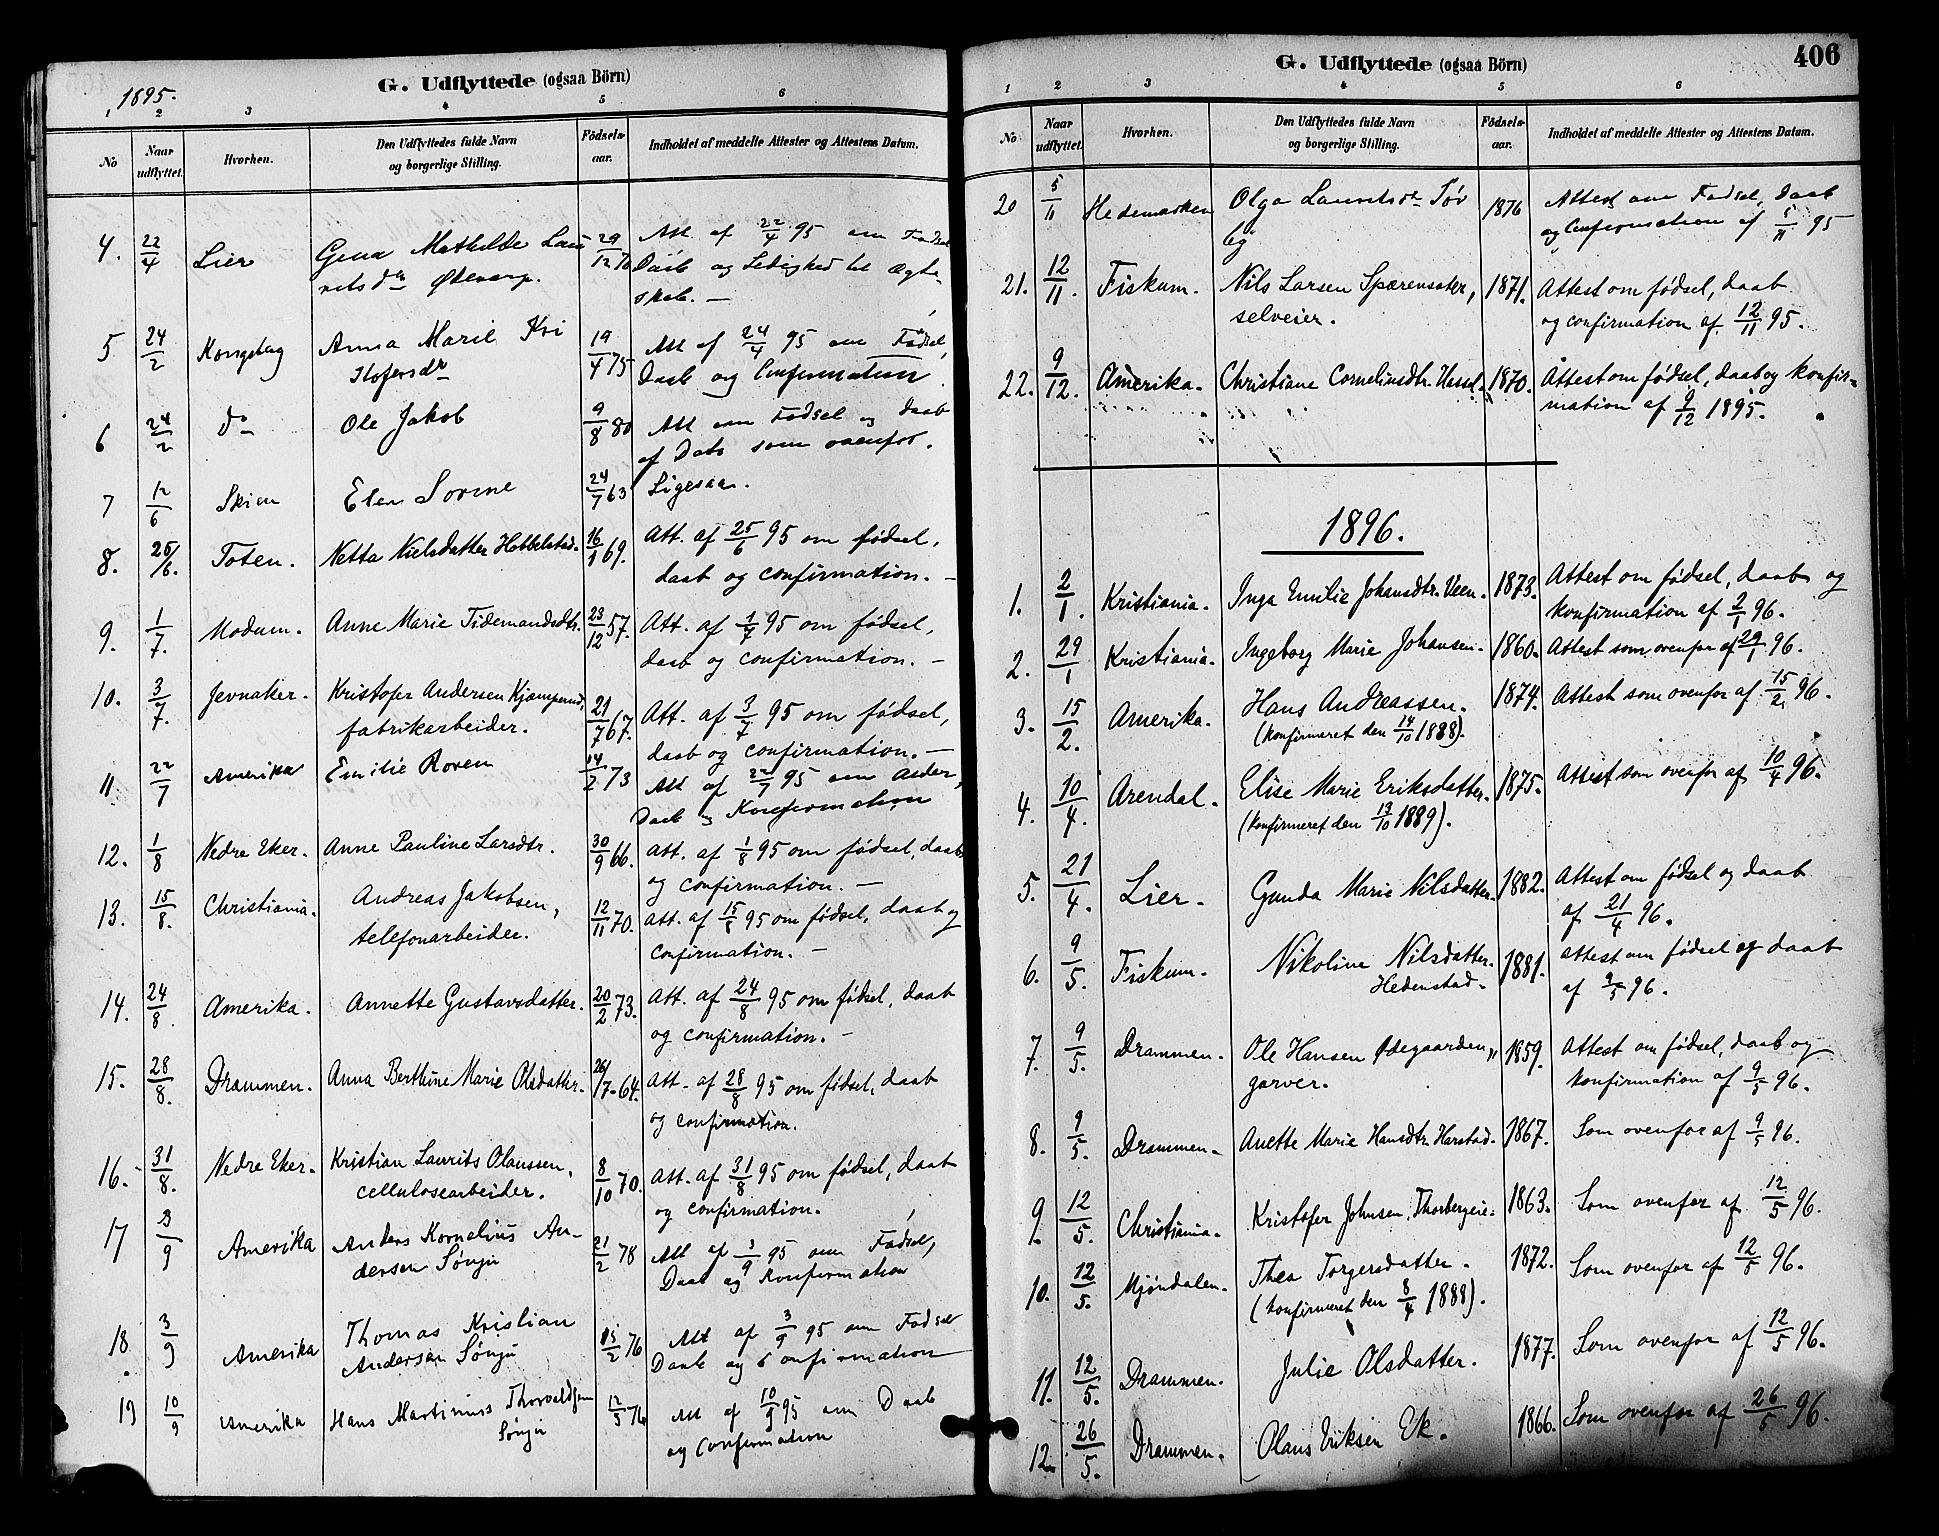 1895.
G. Udflyttede (ogsaa Börn)
1 2 3 4 5 6
No
Naar udflyttet.
Hvorhen.
Den Udflyttedes fulde Navn
og borgerlige Stilling.
Födsels-
aar.
Indholdet af meddelte Attester og Attestens Datum.
4. 22/4 Lier Gina Mathilde Lau 29/12 Att. af 22/4 95 om Fødsel
ritsdr Daab og Ledighed til Ægte-
skab. —
5 24/2 Kongsberg Anna Marie Kri 19/4 75 Att af 24/4 95 om Fødsel,
stofersdr Daab og Confirmation.
6 24/2 do Ole Jakob 9/8 80 Att om Fødsel og Daab
af Dato som ovenfor.
7 12/6 Skien Elen Sorine 24/7 63 Ligesaa.
8. 25/6. Toten. Netta Nielsdatter Hobbelstad. 16/1 69. Att. af 25/6 95 om fødsel,
daab og confirmation. —
9. 1/7. Modum. Anne Marie Tidemandsdtr. 23/12 57. Att. af 1/7 95 om fødsel,
daab og confirmation. —
10. 3/7. Jevnaker. Kristofer Andersen Kjæmperud, 21/7 67. Att. af 3/7 95 om fødsel,
fabrikarbeider. daab og confirmation. —
11 22/7 Amerika Emilie Roren 14/2 73 Att af 22/7 95 om Alder,
Daab og Konfirmation
12. 1/8 Nedre Eker. Anne Pauline Larsdtr. 30/9 66. Att. af 1/8 95 om fødsel, daab
og confirmation. —
13. 15/8. Christiania. Andreas Jakobsen, 12/11 70. Att. af 15/8 95 om fødsel, daab og
telefonarbeider. confirmation. —
14. 24/8. Amerika. Annette Gustavsdatter. 20/2 73. Att. af 24/8 95 om fødsel, daab
og confirmation. —
15. 28/8. Drammen. Anna Berthine Marie Olsdatter. 26/7 64. Att. af 28/8 95 om fødsel, daab
og confirmation.
16. 31/8. Nedre Eker. Kristian Laurits Olaussen, 8/10 70. Att. af 31/8 95 om fødsel, daab
cellulosearbeider. og confirmation.
17 3/9 Amerika Anders Kornelius An- 21/2 78 Att af 3/9 95 om Fødsel,
dersen Sønju Daab og Konfirmation
18. 3/9 Amerika Thomas Kristian 15/2 76 Att af 3/9 95 om Fødsel
Andersen Sønju Daab og Confirmation
19 10/9 Amerika Hans Martinius Thorvaldsen 12/3 76 Att af 10/9 95 om Daab
Sønju og Confirmation
406
G. Udflyttede (ogsaa Börn)
1 2 3 4 5 6
No
Naar udflyttet.
Hvorhen.
Den Udflyttedes fulde Navn
og borgerlige Stilling.
Födsels-
aar.
Indholdet af meddelte Attester og Attestens Datum.
20 5/11 Hedemarken Olga Lauritsdr 1876 Attest om Fødsel, Daab
og Confirmation af 5/11 95
21. 12/11. Fiskum. Nils Larsen Spærensater, 1871. Attest om fødsel, daab
selveier. og confirmation af 12/11 95.
22. 9/12. Amerika. Christiane Corneliusdtr. Hassel. 1870. Attest om fødsel, daab og konfir-
mation af 9/12 1895.
1896.
1. 2/1. Kristiania. Inga Emilie Johansdtr. Veen. 1873. Attest om fødsel, daab og
konfirmation af 2/1 96.
2. 29/1 Kristiania. Ingeborg Marie Johansen. 1860. Attest som ovenfor af 29/1 96.
3. 15/2. Amerika. Hans Andreassen. 1874. Attest som ovenfor af 15/2 96.
(konfirmeret den 14/10 1888).
4. 10/4. Arendal. Elise Marie Eriksdatter. 1875. Attest som ovenfor af 10/4 96.
(konfirmeret den 13/10 1889).
5. 21/4. Lier. Gunda Marie Nilsdatter. 1882. Attest om fødsel og daab
af 21/4 96.
6. 9/5. Fiskum. Nikoline Nilsdatter. 1881. Attest om fødsel og daab
Hedenstad. af 9/5 96.
7. 9/5. Drammen. Ole Hansen Ødegaarden, 1859. Attest om fødsel, daab og
garver. konfirmation af 9/5 96.
8. 9/5. Drammen. Anette Marie Hansdtr. Harstad. 1867. Som ovenfor af 9/5 96.
9. 12/5. Christiania. Kristofer Johnsen, Thorbergeie. 1863. Som ovenfor af 12/5 96.
10. 12/5. Mjøndalen. Thea Torgersdatter. 1872. Som ovenfor af 12/5 96.
(konfirmeret den 8/4 1888).
11. 12/5. Drammen. Julie Olsdatter. 1877. Som ovenfor af 12/5 96.
12. 26/5. Drammen. Olaus Eriksen Ek. 1866. Som ovenfor af 26/5 96.